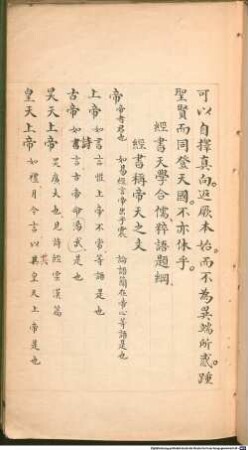 可以自擇真向。近厥本始。而不為異端所惑。踵
聖賢而同登天國。不亦休乎。
經書天學合儒粹語題綱
經書稱帝天之文
帝 帝者君也 如易經言帝出乎震 論語簡在帝心等語是也
上帝 如書言惟上帝不常等語是也
古帝 如詩書言古帝命湯武是也
昊天上帝 昊廣大也見詩經雲漢篇
皇天上帝 如禮月令言以共皇天上帝是也